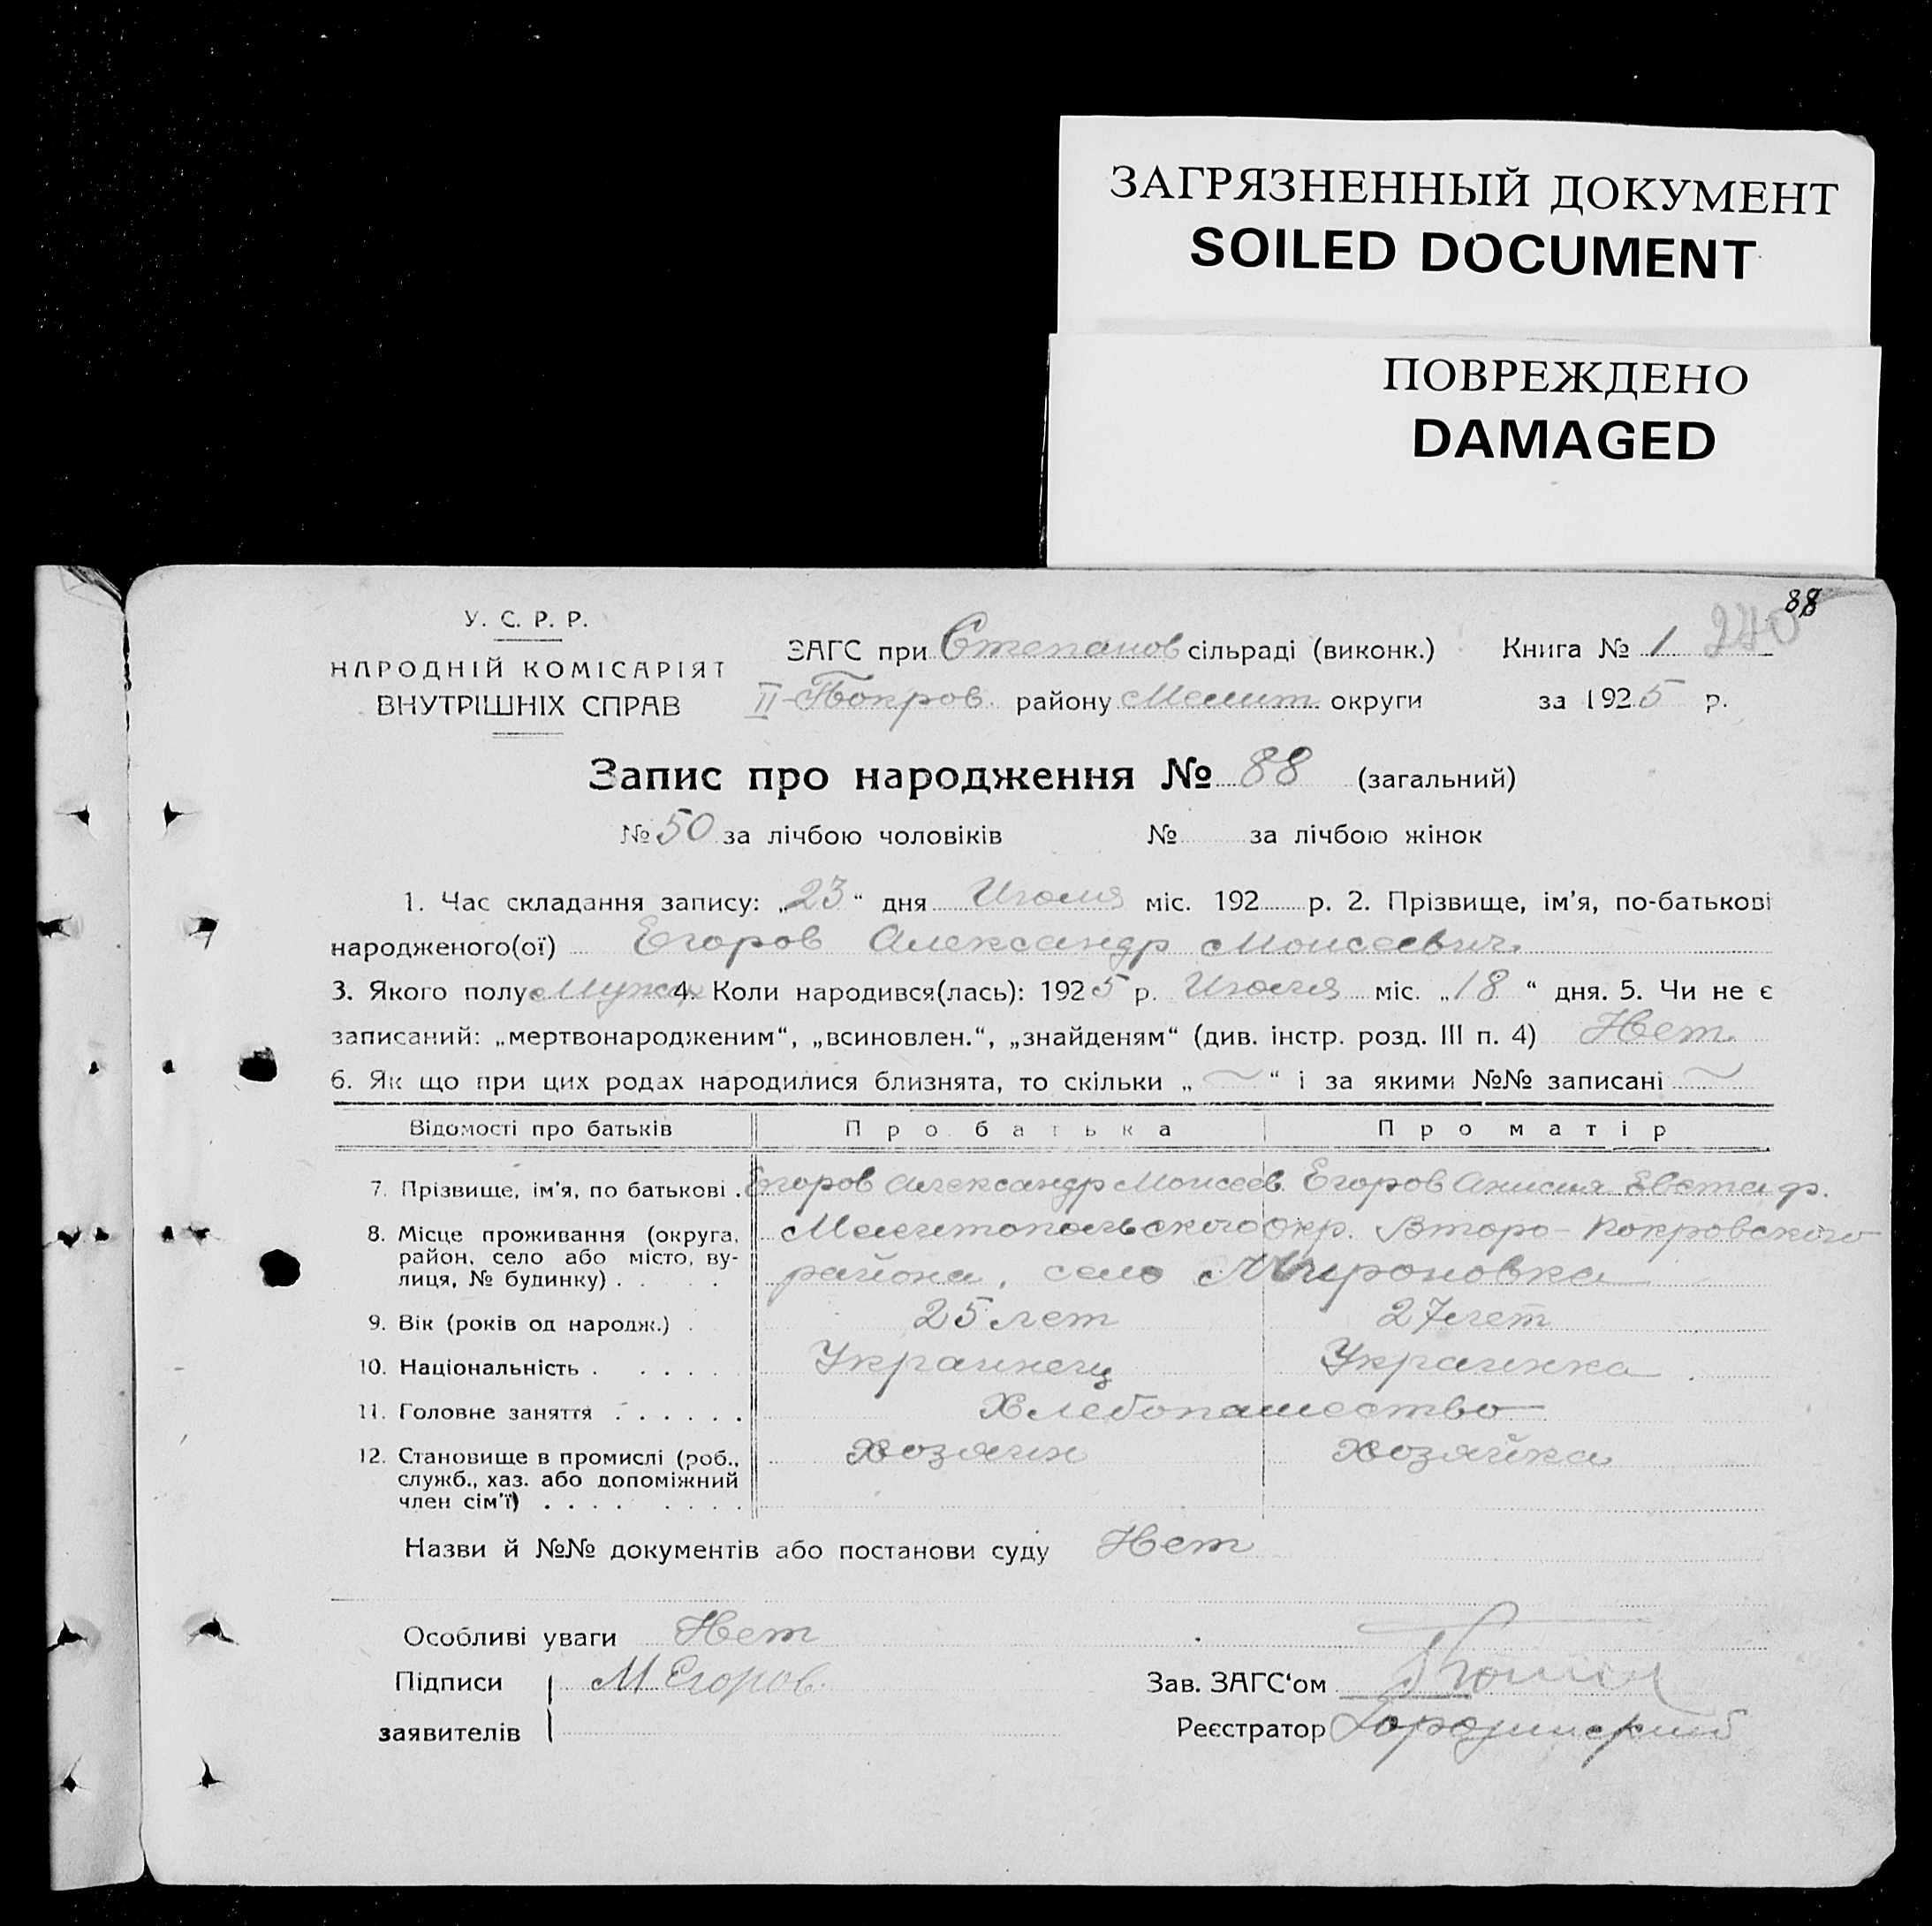 ЗАГРЯЗНЕННЫЙ ДОКУМЕНТ
SOILED DOCUMENT
ПОВРЕЖДЕНО
DAMAGED
88
240
У. С. Р. Р.
НАРОДНІЙ КОМІСАРІЯТ
ВНУТРІШНІХ СПРАВ
ЗАГС при Степанов сільраді (виконк.) Книга № 1
II-Покров. району Мелит. округи за 1925 р.
Запис про народження № 88 (загальний)
№ 50 за лічбою чоловіків № за лічбою жінок
1. Час складання запису: „23“ дня Июля міс. 192 р. 2. Прізвище, ім'я, по-батькові
народженого(ої) Егоров Александр Моисеевич.
3. Якого полу Мужск 4. Коли народився(лась): 1925 р. Июля міс. „18“ дня. 5. Чи не є
записаний: „мертвонародженим“, „всиновлен.“, „знайденям“ (див. інстр. розд. III п. 4) Нет.
6. Як що при цих родах народилися близнята, то скільки „ ~ “ і за якими №№ записані ~
Відомості про батьків Про батька Про матір
7. Прізвище, ім'я, по батькові . Егоров Александр Моисеев. Егоров Анисия Евстаф.
8. Місце проживання (округа, район, село або місто, вулиця, № будинку) . . . Мелитопольского окр. Второ-Покровского
района, село Мироновка
9. Вік (років од народж.) . 25 лет 27 лет
10. Національність . . . . . Украинец Украинка
11. Головне заняття . . . . . . Хлебопашество
12. Становище в промислі (роб., служб., хаз. або допоміжний член сім'ї) . . . . . . . . Хозяин Хозяйка
Назви й №№ документів або постанови суду Нет
Особливі уваги Нет
Підписи М Егоров.
заявителів
Зав. ЗАГС'ом
Реєстратор